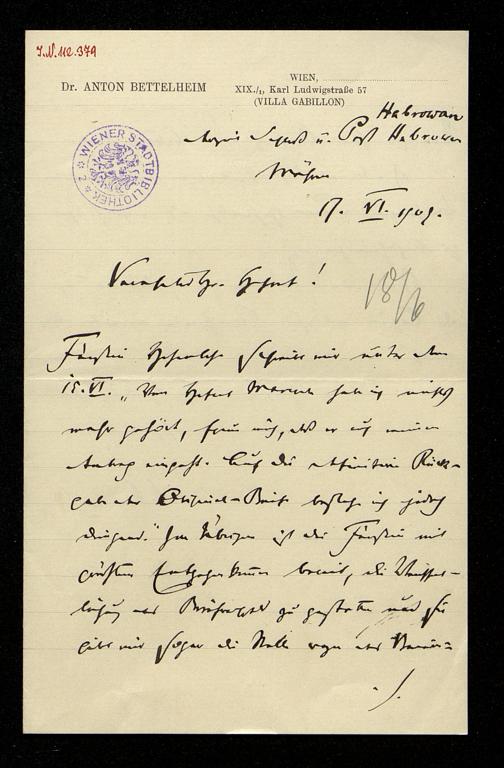 J.N. 112.379
Dr. ANTON BETTELHEIM
WIEN,
XIX./1, Karl Ludwigstraße 57
(VILLA GABILLON)
WIENER STADTBIBLIOTHEK
2
Habrowan
u. Post Habrowan
Mähren
17. VI. 1909.
Verehrtester Hofrat!
18/6
Fürstin Hohenlohe schreibt mir unter dem
15. VI. „Von Hofrat habe ich nichts
mehr gehört, freue mich, daß er auf meinen
Antrag eingeht. Auf die definitive Rück-
gabe der Original-Briefe bestehe ich jedoch
dringend." Im Übrigen ist die Fürstin mit
größtem Entgegenkommen bereit, die
der zu gestatten und sie
gibt mir sogar die
./.